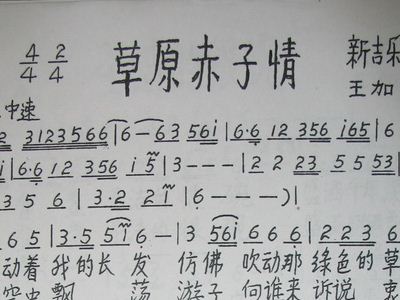 4/4 2/4 草原赤子情 新吉乐
王加
中速
2 3123566|6-63 56i|6·6 12 356 i65|6
i|6·6 12 356 i 5|3---|2 2 23 5 5 53|
3 5 6|3·2 2 1|6---)|
6 5|3·5 5 i 6-|3 56i 6 6 6|2 2 3 6
动着 我的长 发 仿佛 吹动那 绿色的 草
飘 荡 游子 向谁来 诉说